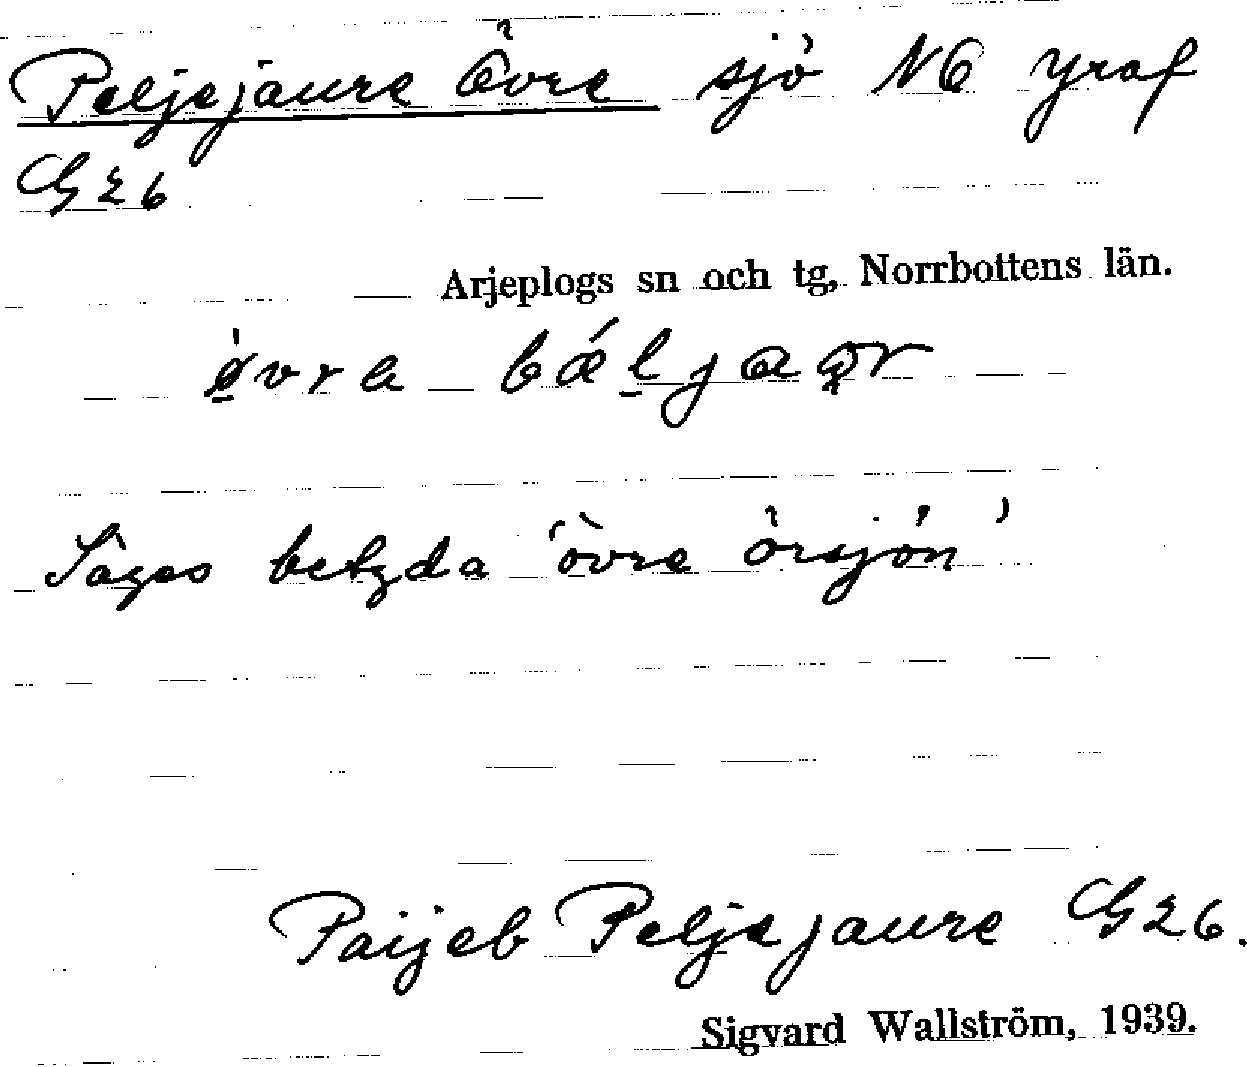 Peljejaure Övre sjö NC yraf
G26
Arjeplogs sn och tg, Norrbottens län.
øvra bǽljaɷr
Säges betyda 'övre örsjön'
Paijeb Peljejaure G26.
Sigvard Wallström, 1939.